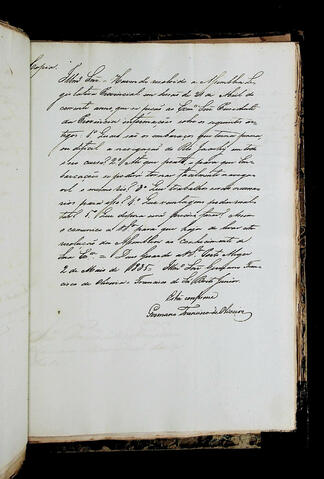 Copia.
Illmo Snr = Havendo resolvido a Assemblea Le
gislativa Provincial em sessão de 30 de Abril do
corrente anno, que se pessão ao Exmo Snr Presidente
da Provincia informaçoens sobre os seguintes ar
tigos. 1º Quaes são os embaraços que tornão penosa,
ou dificil a navegação do Rio Jacuhy em todo
o seu curso? 2º Até que ponto, e para que Em
barcações se poderá tornar facilmente navega
vel o mesmo rio? 3º Que trabalhos serão necessa
rios para isso? 4º Que vantagens podem resul
tar? 5º Que despeza será precisa fazer? Assim
o communico a VSª para que haja de levar esta
resolução da Assemblea ao conhecimento de
Sua Exª = Deos Guarde a VSª Porto Alegre
2 de Maio de 1835 = Illmo Snr Germano Fran
cisco de Oliveira = Francisco de Sá Brito Junior.
Está conforme
Germano Francisco de Oliveira